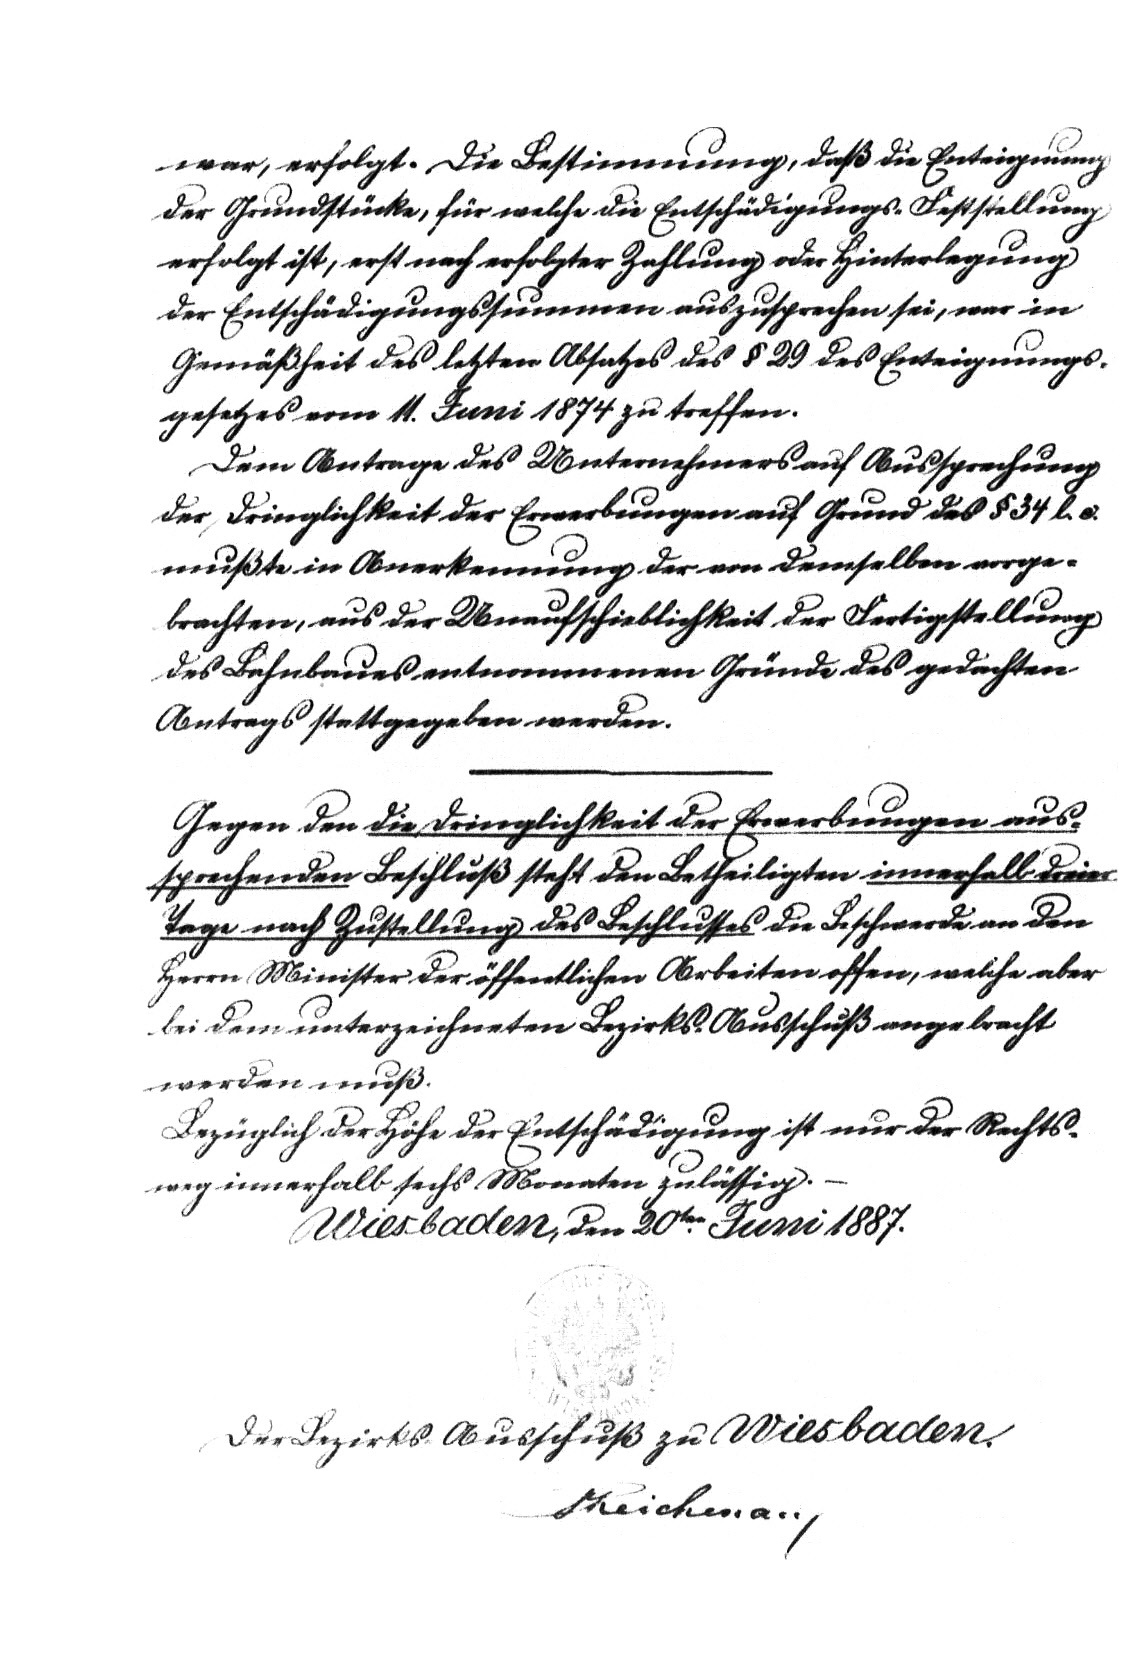 war, erfolgt. Die Bestimmung, daß die Enteignung
der Grundstücke, für welche die Entschädigungs-Feststellung
erfolgt ist, erst nach erfolgter Zahlung oder Hinterlegung
der Entschädigungssummen auszusprechen sei, war in
Gemäßheit des letzten Absatzes des § 29 des Enteignungs-
gesetzes vom 11. Juni 1874 zu treffen.
Dem Antrage des Unternehmers auf Aussprechung
der Dringlichkeit der Erwerbungen auf Grund des § 34 l. c.
mußte in Anerkennung der von demselben vorge-
brachten, aus der Unaufschieblichkeit der Fertigstellung
des Bahnbaues entnommenen Gründe des gedachten
Antrags stattgegeben werden.
Gegen den die Dringlichkeit der Erwerbungen aus-
sprechenden Beschluß steht den Betheiligten innerhalb dreier
Tage nach Zustellung des Beschlusses die Beschwerde an den
Herrn Minister der öffentlichen Arbeiten offen, welche aber
bei dem unterzeichneten Bezirks-Ausschuß angebracht
werden muß.
Bezüglich der Höhe der Entschädigung ist nur der Rechts-
weg innerhalb sechs Monaten zulässig. —
Wiesbaden, den 20ten Juni 1887.
Der Bezirks-Ausschuß zu Wiesbaden.